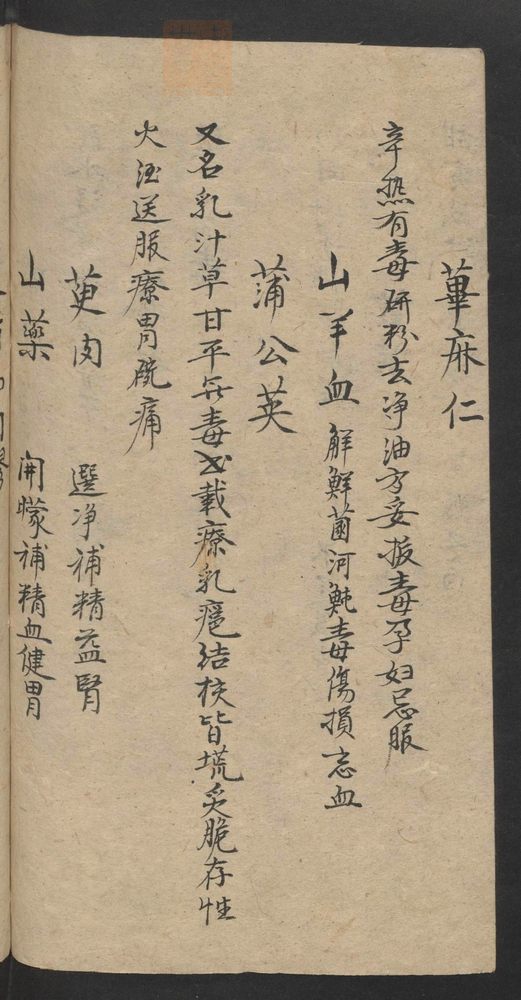 萆麻仁
辛热有毒研粉去净油方妥拔毒孕妇忌服
山羊血 解鲜菌河魨毒傷損忘血
蒲公英
又名乳汁草甘平無毒載療乳癌結核皆炙脆存性
火酒送服療胃脘痛
萸肉 選净補精益腎
山藥 開矇補精血健胃